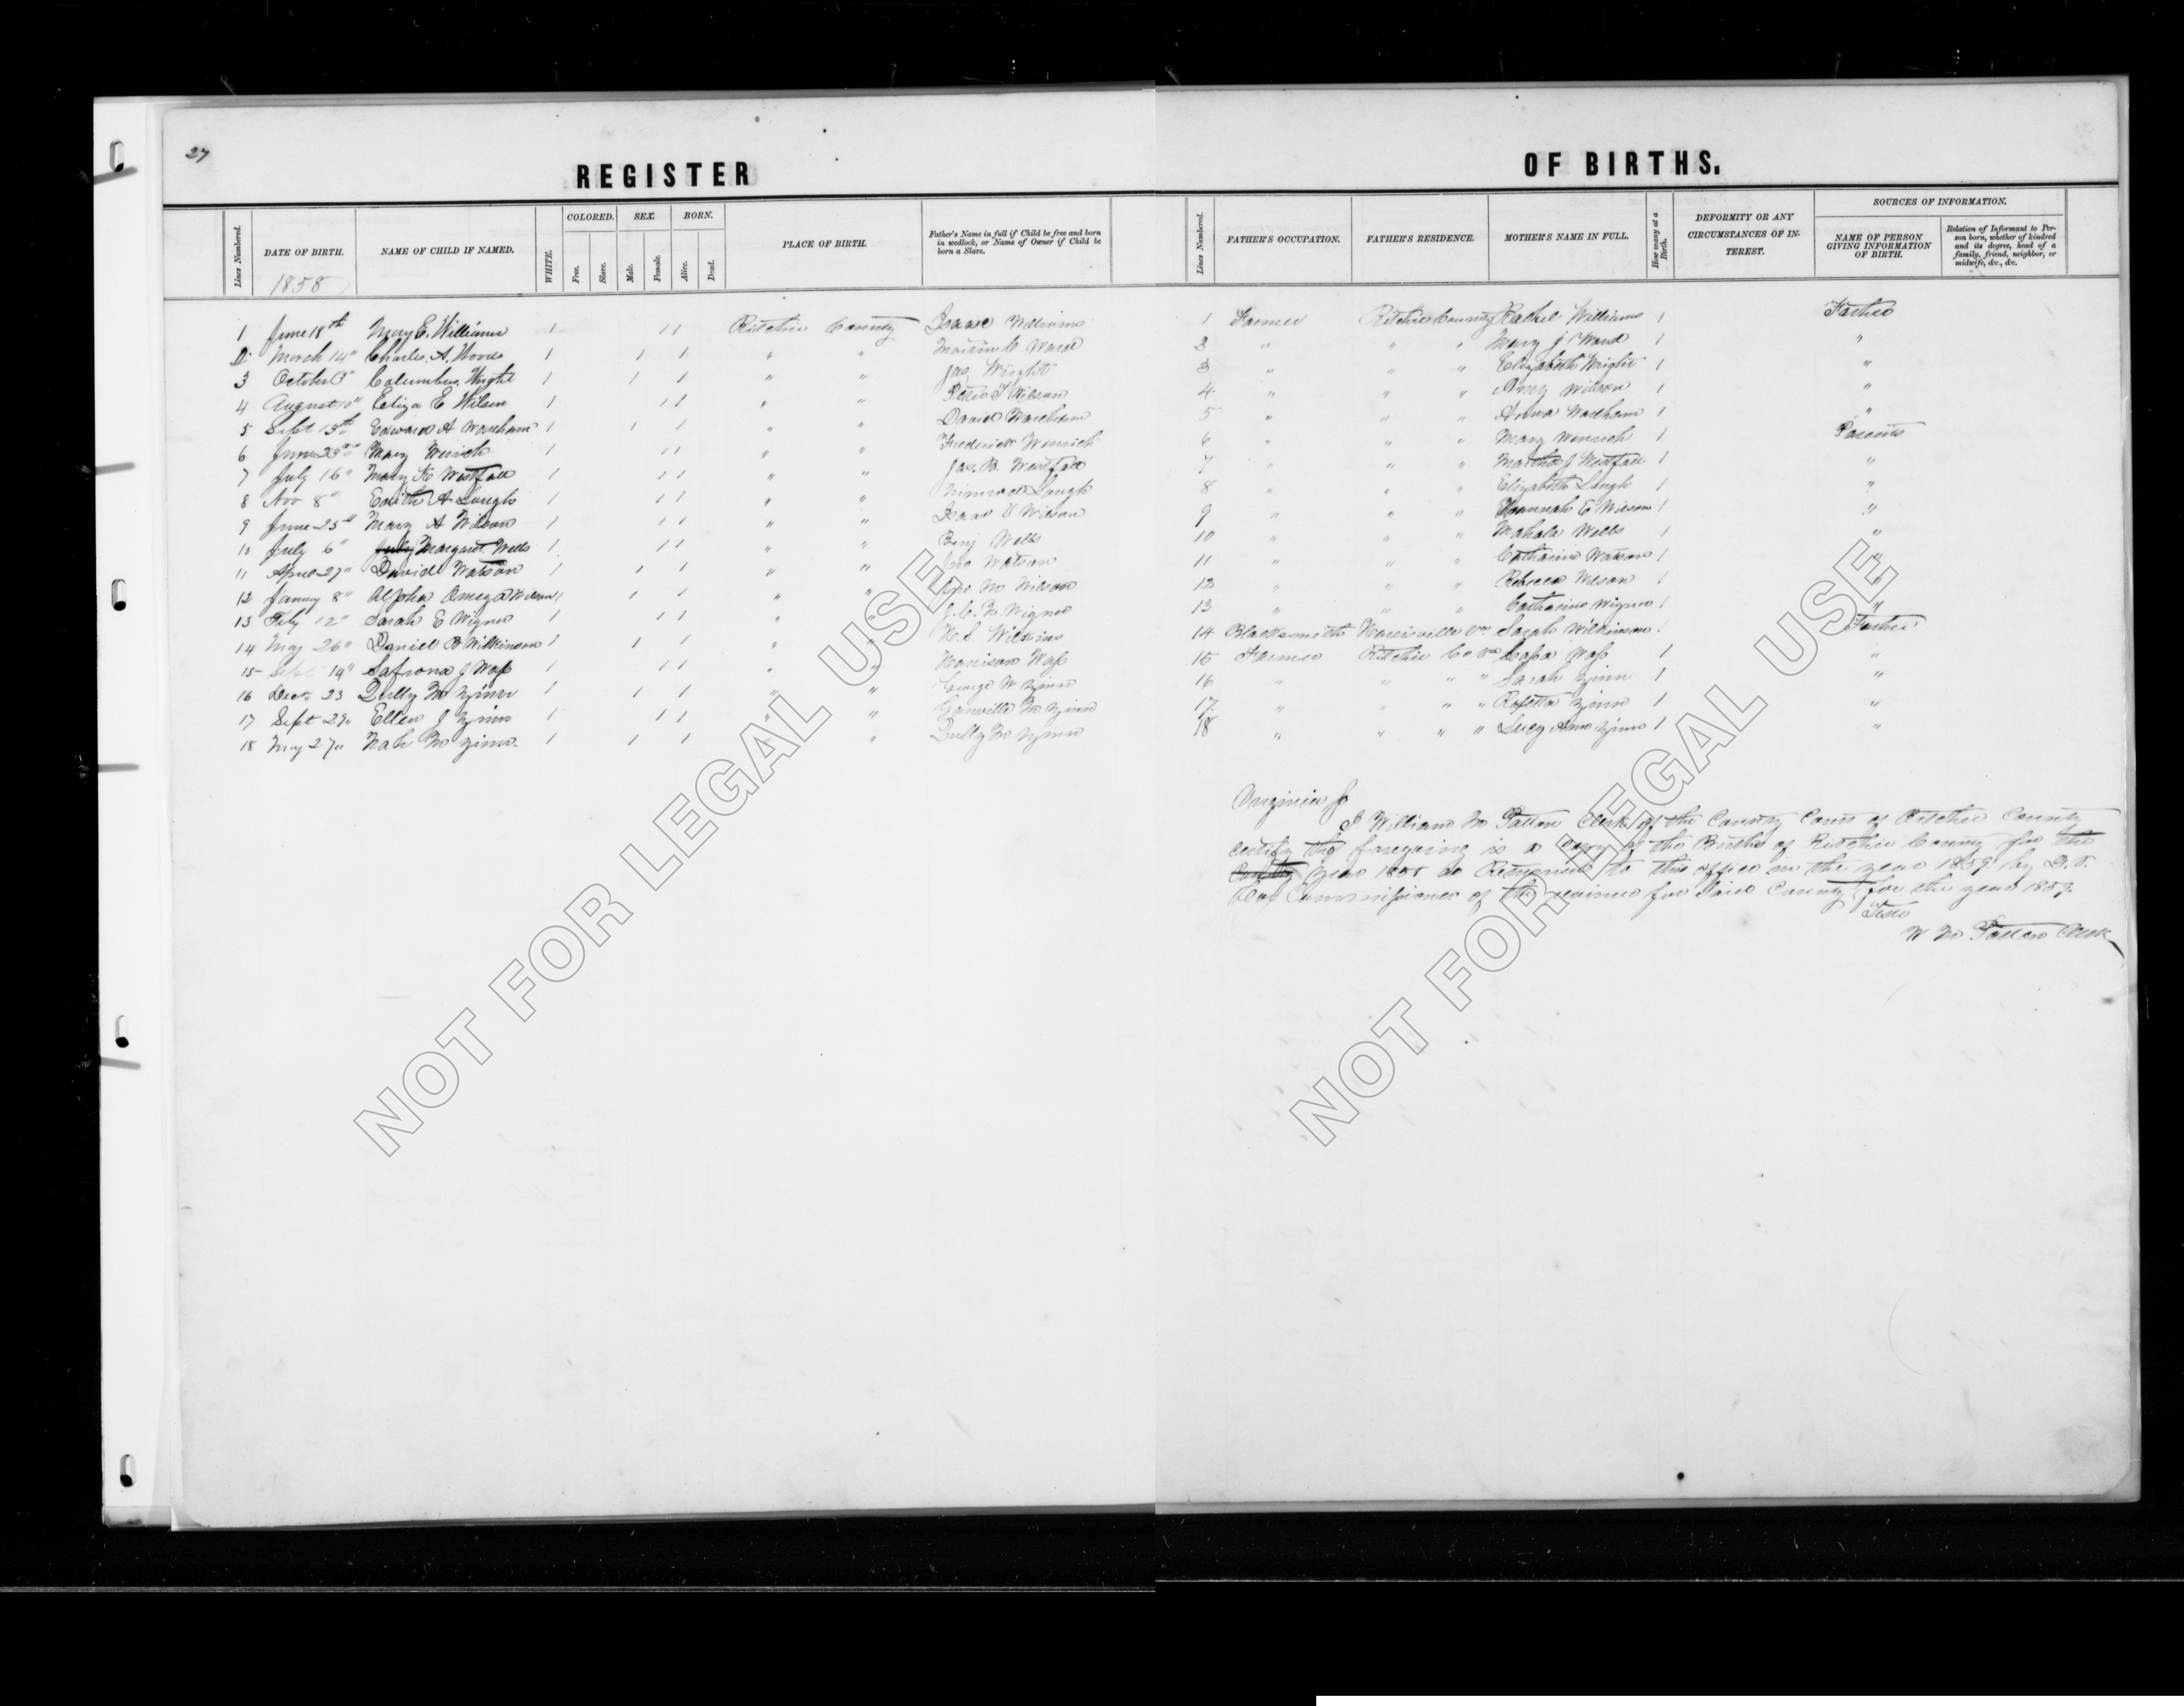 27
REGISTER OF BIRTHS.
Lines Numbered. DATE OF BIRTH. NAME OF CHILD IF NAMED. WHITE. COLORED. Free. Slave. SEX. Male. Female. BORN. Alive. Dead. PLACE OF BIRTH. Father's Name in full if Child be free and born in wedlock, or Name of Owner if Child be born a Slave. Lines Numbered. FATHER'S OCCUPATION. FATHER'S RESIDENCE. MOTHER'S NAME IN FULL. How many at a Birth. DEFORMITY OR ANY CIRCUMSTANCES OF INTEREST. SOURCES OF INFORMATION. NAME OF PERSON GIVING INFORMATION OF BIRTH. Relation of Informant to Person born, whether of kindred and its degree, head of a family, friend, neighbor, or midwife, &c., &c.
1858
1 June 18th Mary E. Williams 1 1 1 Ritchie County Isaac Williams 1 Farmer Ritchie County Rachel Williams 1 Father
2 March 14" Charles A. 1 1 1 " " Ward 2 " " " Mary J Ward 1 "
3 October 3" Columbus Wright 1 1 1 " " Jas Wright 3 " " " Elizabeth Wright 1 "
4 August 10" Eliza E Wilson 1 1 1 " " Wilson 4 " " " Amy Wilson 1 "
5 Sept 13th Edward A Wareham 1 1 1 " " David Wareham 5 " " " Anna Wareham 1 "
6 June 23rd Mary 1 1 1 " " Frederick Wenrich 6 " " " Mary Wenrich 1 Parents
7 July 16" Mary K Westfall 1 1 1 " " Jas. B. Westfall 7 " " " Martha J Westfall 1 "
8 Nov 8" Edith A Laugh 1 1 1 " " Nimrod Laugh 8 " " " Elizabeth Laugh 1 "
9 June 25" Mary A Wilson 1 1 1 " " Isaac Wilson 9 " " " Hannah E Wilson 1 "
10 July 6" July Margaret Wells 1 1 1 " " Benj Wells 10 " " " Mahala Wells 1 "
11 April 27" David Watson 1 1 1 " " Watson 11 " " " Catharine Watson 1 "
12 January 8" Alpha Omega Wilson 1 1 1 " " Wilson 12 " " " Rebecca Wilson 1 "
13 Feby 12" Sarah E Wigner 1 1 1 " " Wigner 13 " " " Catharine Wigner 1 "
14 May 26" Daniel B Wilkinson 1 1 1 " " 14 Blacksmith Harrisville Va Sarah Wilkinson 1 Father
15 Sept 14" Safrona J Wass 1 1 1 " " Harrison Wass 15 Farmer Ritchie Co Va Wass 1 "
16 Dec 23 Quilly M Zinn 1 1 1 " " George W Zinn 16 " " " " Sarah Zinn 1 "
17 Sept 29" Ellen J Zinn 1 1 1 " " Granville M Zinn 17 " " " " Rosetta Zinn 1 "
18 May 27" M Zinn 1 1 1 " " Quilly M Zinn 18 " " " " Lucy Ann Zinn 1 "
Virginia
I William M Patton Clerk of the County Court of Ritchie County
certify the foregoing is a copy of the Births of Ritchie County for the
County year 1858 as Returned to this office in the year 1859 by D. V.
Cox Commissioner of the revenue for said County for the year 1859.
Teste
W M Patton Clerk
NOT FOR LEGAL USE
NOT FOR LEGAL USE